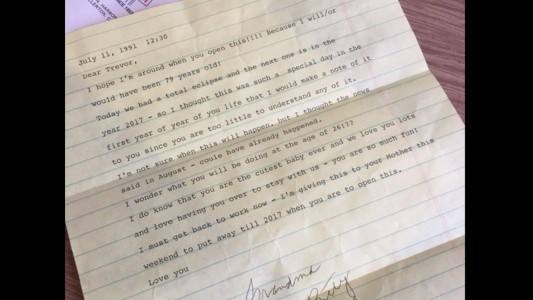 July 11, 1991 12:30
Dear Trevor,
I hope I'm around when you open this!!!! Because I will/or
would have been 79 years old!
Today we had a total eclipse and the next one is in the
year 2017 - so I thought this was such a special day in the
first year of year of you life that I would make a note of it
to you since you are too little to understand any of it.
I'm not sure when this will happen, but I thought the news
said in August - could have already happened.
I wonder what you will be doing at the age of 26!??
I do know that you are the cutest baby ever and we love you lots
and love having you over to stay with us - you are so much fun!
I must get back to work now - I'm giving this to your Mother this
weekend to put away till 2017 when you are to open this.
Love you
Grandma